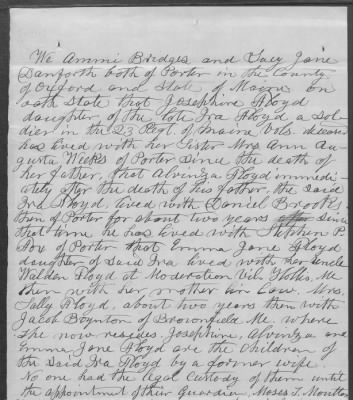 We Ammi Bridges and Lucy Jane
Danforth both of Porter in the County
of Oxford and State of Maine on
oath State that Josephine Floyd
daughter, of the late Ira Floyd a Sol-
dier in the 23 Regt. of Maine Vols. 
has lived with her Sister Mrs Ann Au-
gusta Weeks of Porter Since the death of
her father, that Alvinza Floyd immedi-
ately after the death of his father, the said
Ira Floyd, lived with Daniel Brooks
then of Porter for about two years Since
that time he has lived with Stephen P.
Fox of Porter that Emma Jane Floyd
daughter of Said Ira lived with her Uncle
Walden Floyd at Moderation Vil. Hollis, Me
then with her mother in Law, Mrs.
Sally Floyd, about two years then with
Jacob Boynton of Brownfield Me where
She now resides. Josephine, Alvinza and
Emma Jane Floyd are the children of
the Said Ira Floyd by a former wife.
No one had the legal Custody of them until
the appointment of their Guardian, Moses S. Moulton